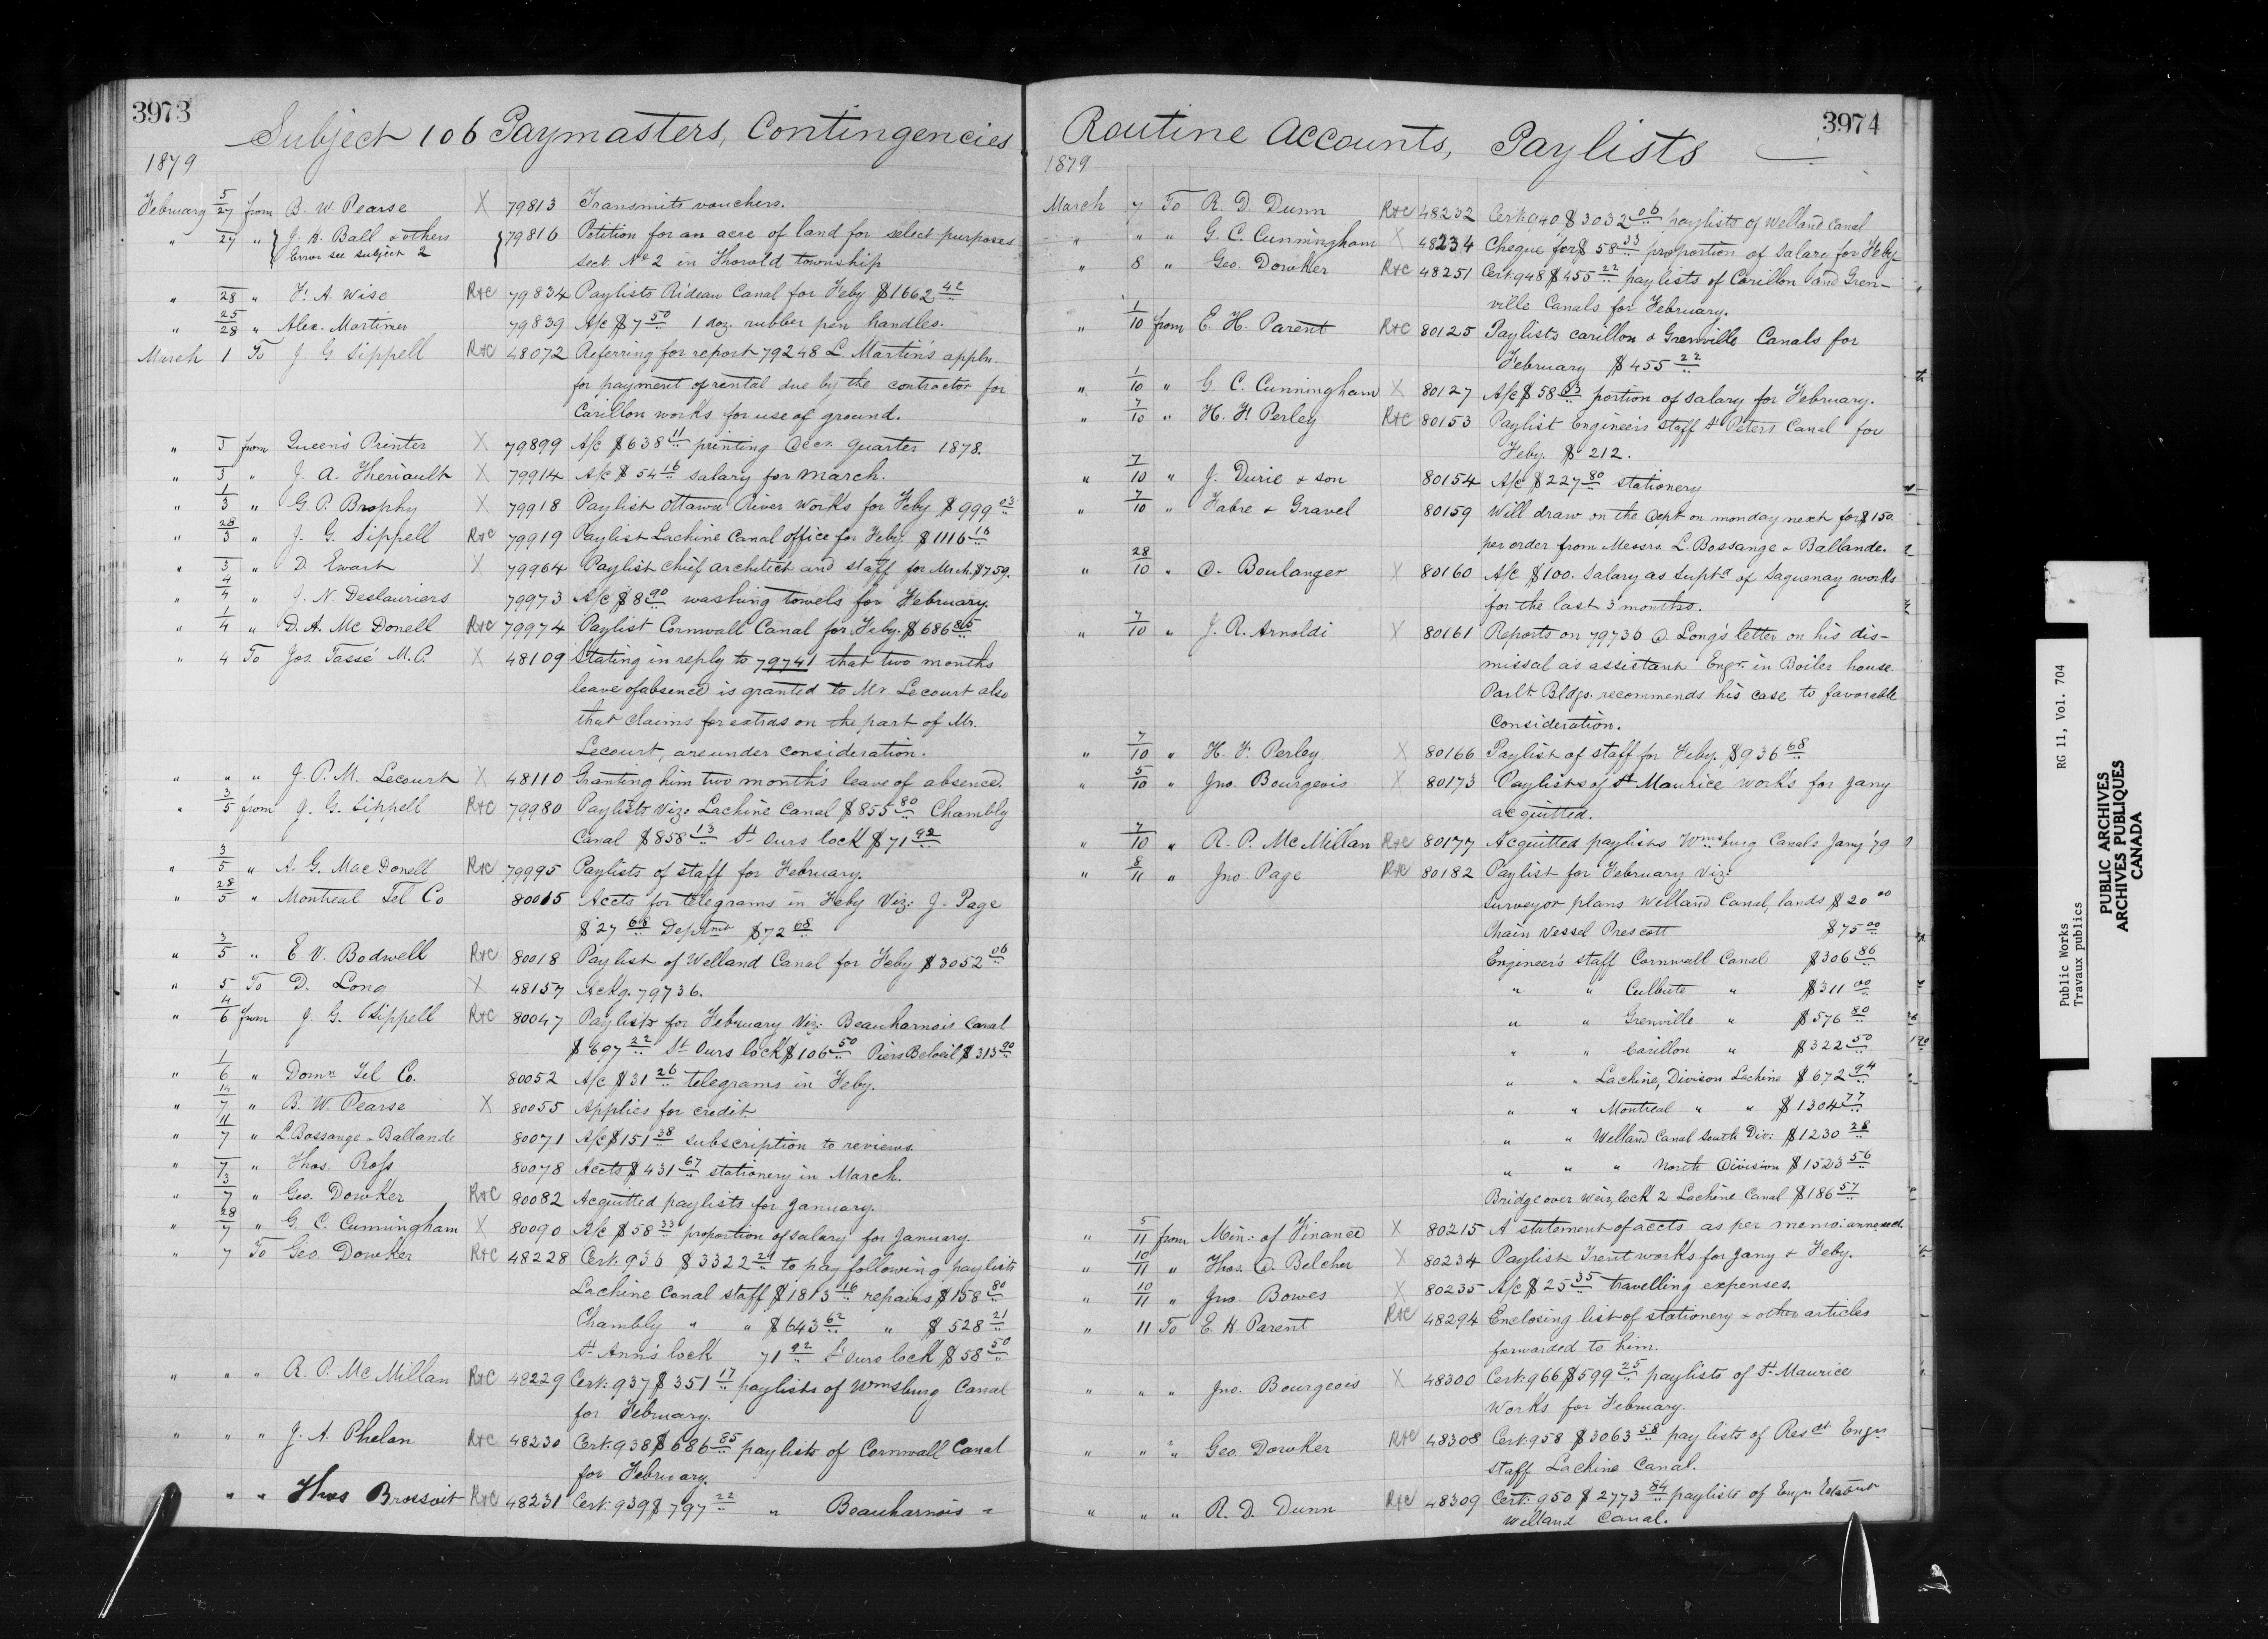 3973
Subject 106 Paymasters, Contingencies
1879
February 5/27 from B. W. Pearse X 79813 Transmits vouchers.
" 27 " J. H. Ball & others 79816 Petition for an acre of land for select purposes
Error see subject 2 sect. No 2 in Thorold township
" 28 " F. A. Wise R&C 79834 Paylists Rideau Canal for Feby $1662 42
" 25/28 " Alex. Mortimer 79839 A/c $7 50 1 doz. rubber pen handles.
March 1 To J. G. Sippell R&C 48072 Referring for report 79248 L. Martin's appln.
for payment of rental due by the contractor for
Carillon works for use of ground.
" 3 from Queen's Printer X 79899 A/c $638 11 printing Decr. quarter 1878.
" 3 " J. A. Theriault X 79914 A/c $54 16 salary for March.
" 1/3 " G. P. Brophy X 79918 Paylist Ottawa River Works for Feby $999 03
" 28/3 " J. G. Sippell R&C 79919 Paylist Lachine Canal office for Feby. $1116 16
" 3 " D. Ewart X 79964 Paylist Chief architect and staff for Mrch. $759.
" 4/4 " J. N. Deslauriers 79973 A/c $8 90 washing towels for February.
" 1/4 " D. A. McDonell R&C 79974 Paylist Cornwall Canal for Feby. $686 85
" 4 To Jos. Tassé M.P. X 48109 Stating in reply to 79741 that two months
leave of absence is granted to Mr. Lecourt also
that claims for extras on the part of Mr.
Lecourt, are under consideration.
" " " J. P. M. Lecourt X 48110 Granting him two months leave of absence.
" 3/5 from J. G. Sippell R&C 79980 Paylists viz: Lachine Canal $855 80 Chambly
Canal $858 13 St Ours lock $71 92
" 3/5 " A. G. MacDonell R&C 79995 Paylists of staff for February.
" 28/5 " Montreal Tel Co 80015 Accts for telegrams in Feby Viz: J. Page
$27 68 Deptmt $72 68
" 3/5 " E. V. Bodwell R&C 80018 Paylist of Welland Canal for Feby $3052 06
" 5 To D. Long X 48157 Ackg. 79736.
" 4/6 from J. G. Sippell R&C 80047 Paylists for February Viz: Beauharnois Canal
$697 22 St Ours lock $106 50 Piers Beloeil $313 90
" 1/6 " Domn Tel Co. 80052 A/c $31 26 telegrams in Feby.
" 14/7 " B. W. Pearse X 80055 Applies for credit.
" 11/7 " L. Bossange & Ballande 80071 A/c $151 38 subscription to reviews.
" 7 " Thos. Ross 80078 Accts $431 67 stationery in March.
" 3/7 " Geo. Dowker R&C 80082 Acquitted paylists for January.
" 28/7 " G. C. Cunningham X 80090 A/c $58 33 proportion of salary for January.
" 7 To Geo. Dowker R&C 48228 Cert. 936 $3322 21 to pay following paylists
Lachine Canal staff $1813 16 repairs $158 80
Chambly " " $643 62 " $528 21
St Ann's lock 71 92 St Ours lock $58 50
" " " R. P. McMillan R&C 48229 Cert: 937 $351 17 paylists of Wmsburg Canal
for February.
" " " J. A. Phelan R&C 48230 Cert. 938 $686 85 paylists of Cornwall Canal
for February.
" " Thos Brossoit R&C 48231 Cert: 939 $797 22 " Beauharnois "
3974
Routine Accounts, Paylists
1879
March 7 To R. D. Dunn R&C 48232 Cert: 940 $3032 06 paylists of Welland Canal
" " " G. C. Cunningham X 48234 Cheque for $58 33 proportion of salary for Feby
" 8 " Geo. Dowker R&C 48251 Cert: 948 $455 22 paylists of Carillon and Gren-
ville Canals for February.
" 1/10 from E. H. Parent R&C 80125 Paylists Carillon & Grenville Canals for
February $455 22
" 1/10 " G. C. Cunningham X 80127 A/c $58 33 portion of salary for February.
" 7/10 " H. F. Perley R&C 80153 Paylist Engineers Staff St Peters Canal for
Feby. $212.
" 7/10 " J. Durie & son 80154 A/c $227 80 stationery
" 7/10 " Fabre & Gravel 80159 Will draw on the Dept on monday next for $150
per order from Messrs. L. Bossange & Ballande.
" 28/10 " D. Boulanger X 80160 A/c $100. Salary as Supt of Saguenay works
for the last 3 months.
" 7/10 " J. R. Arnoldi X 80161 Reports on 79736 D. Long's letter on his dis-
missal as assistant Engr. in Boiler house
Parlt. Bldgs. recommends his case to favorable
consideration.
" 7/10 " H. F. Perley X 80166 Paylist of staff for Feby. $936 68
" 5/10 " Jno. Bourgeois X 80173 Paylists of St Maurice works for Jany
acquitted.
" 7/10 " R. P. McMillan R&C 80177 Acquitted paylists Wmsburg Canals Jany '79
" 8/11 " Jno Page R&C 80182 Paylist for February Viz:
surveyor plans Welland Canal, lands $20 00
Chain Vessel Prescott $75 00
Engineer's staff Cornwall Canal $306 86
" " Culbute " $311 00
" " Grenville " $576 80
" " Carillon " $322 50
" " Lachine, Divison Lachine $672 94
" " Montreal " " $1304 77
" " Welland Canal South Div: $1230 28
" " " North Division $1523 56
Bridge over weir, lock 2 Lachine Canal $186 57
" 5/11 from Min: of Finance X 80215 A statement of accts as per memo: annexed
" 10/11 " Thos. D. Belcher X 80234 Paylist Trent works for Jany & Feby.
" 10/11 " Jno. Bowes X 80235 A/c $25 35 travelling expenses.
" 11 To E. H. Parent R&C 48294 Enclosing list of stationery & other articles
forwarded to him.
" " " Jno. Bourgeois X 48300 Cert: 966 $599 25 paylists of St Maurice
Works for February.
" " " Geo. Dowker R&C 48308 Cert: 958 $3063 58 pay lists of Resdt Engrs
staff Lachine Canal.
" " " R. D. Dunn R&C 48309 Cert: 950 $2773 84 paylists of Engrs
Welland Canal.
Public Works RG 11, Vol. 704
Travaux publics
PUBLIC ARCHIVES
ARCHIVES PUBLIQUES
CANADA